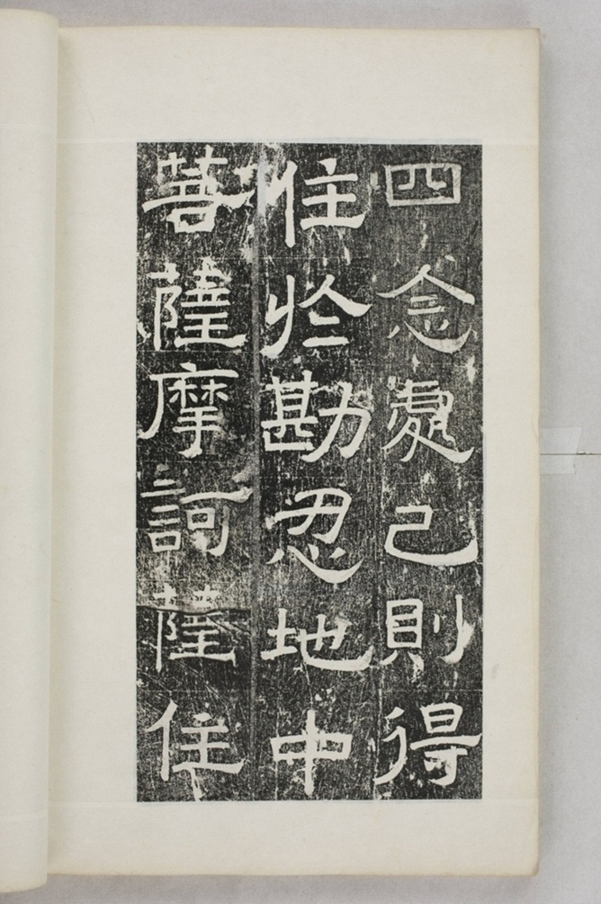 四念處己則得
住於勘忍地中
菩薩摩訶薩住